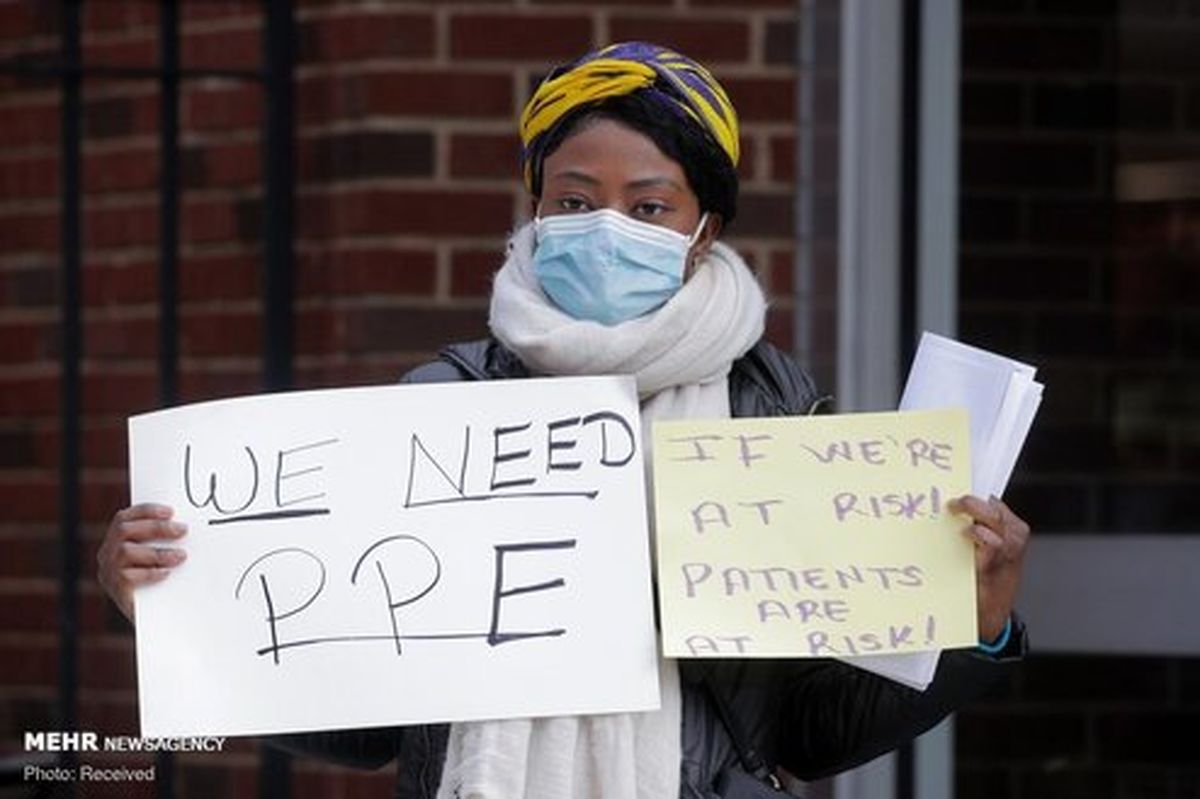 WE NEED
PPE
IF WE'RE
AT RISK!
PATIENTS
ARE
AT RISK!
MEHR NEWSAGENCY
Photo: Received